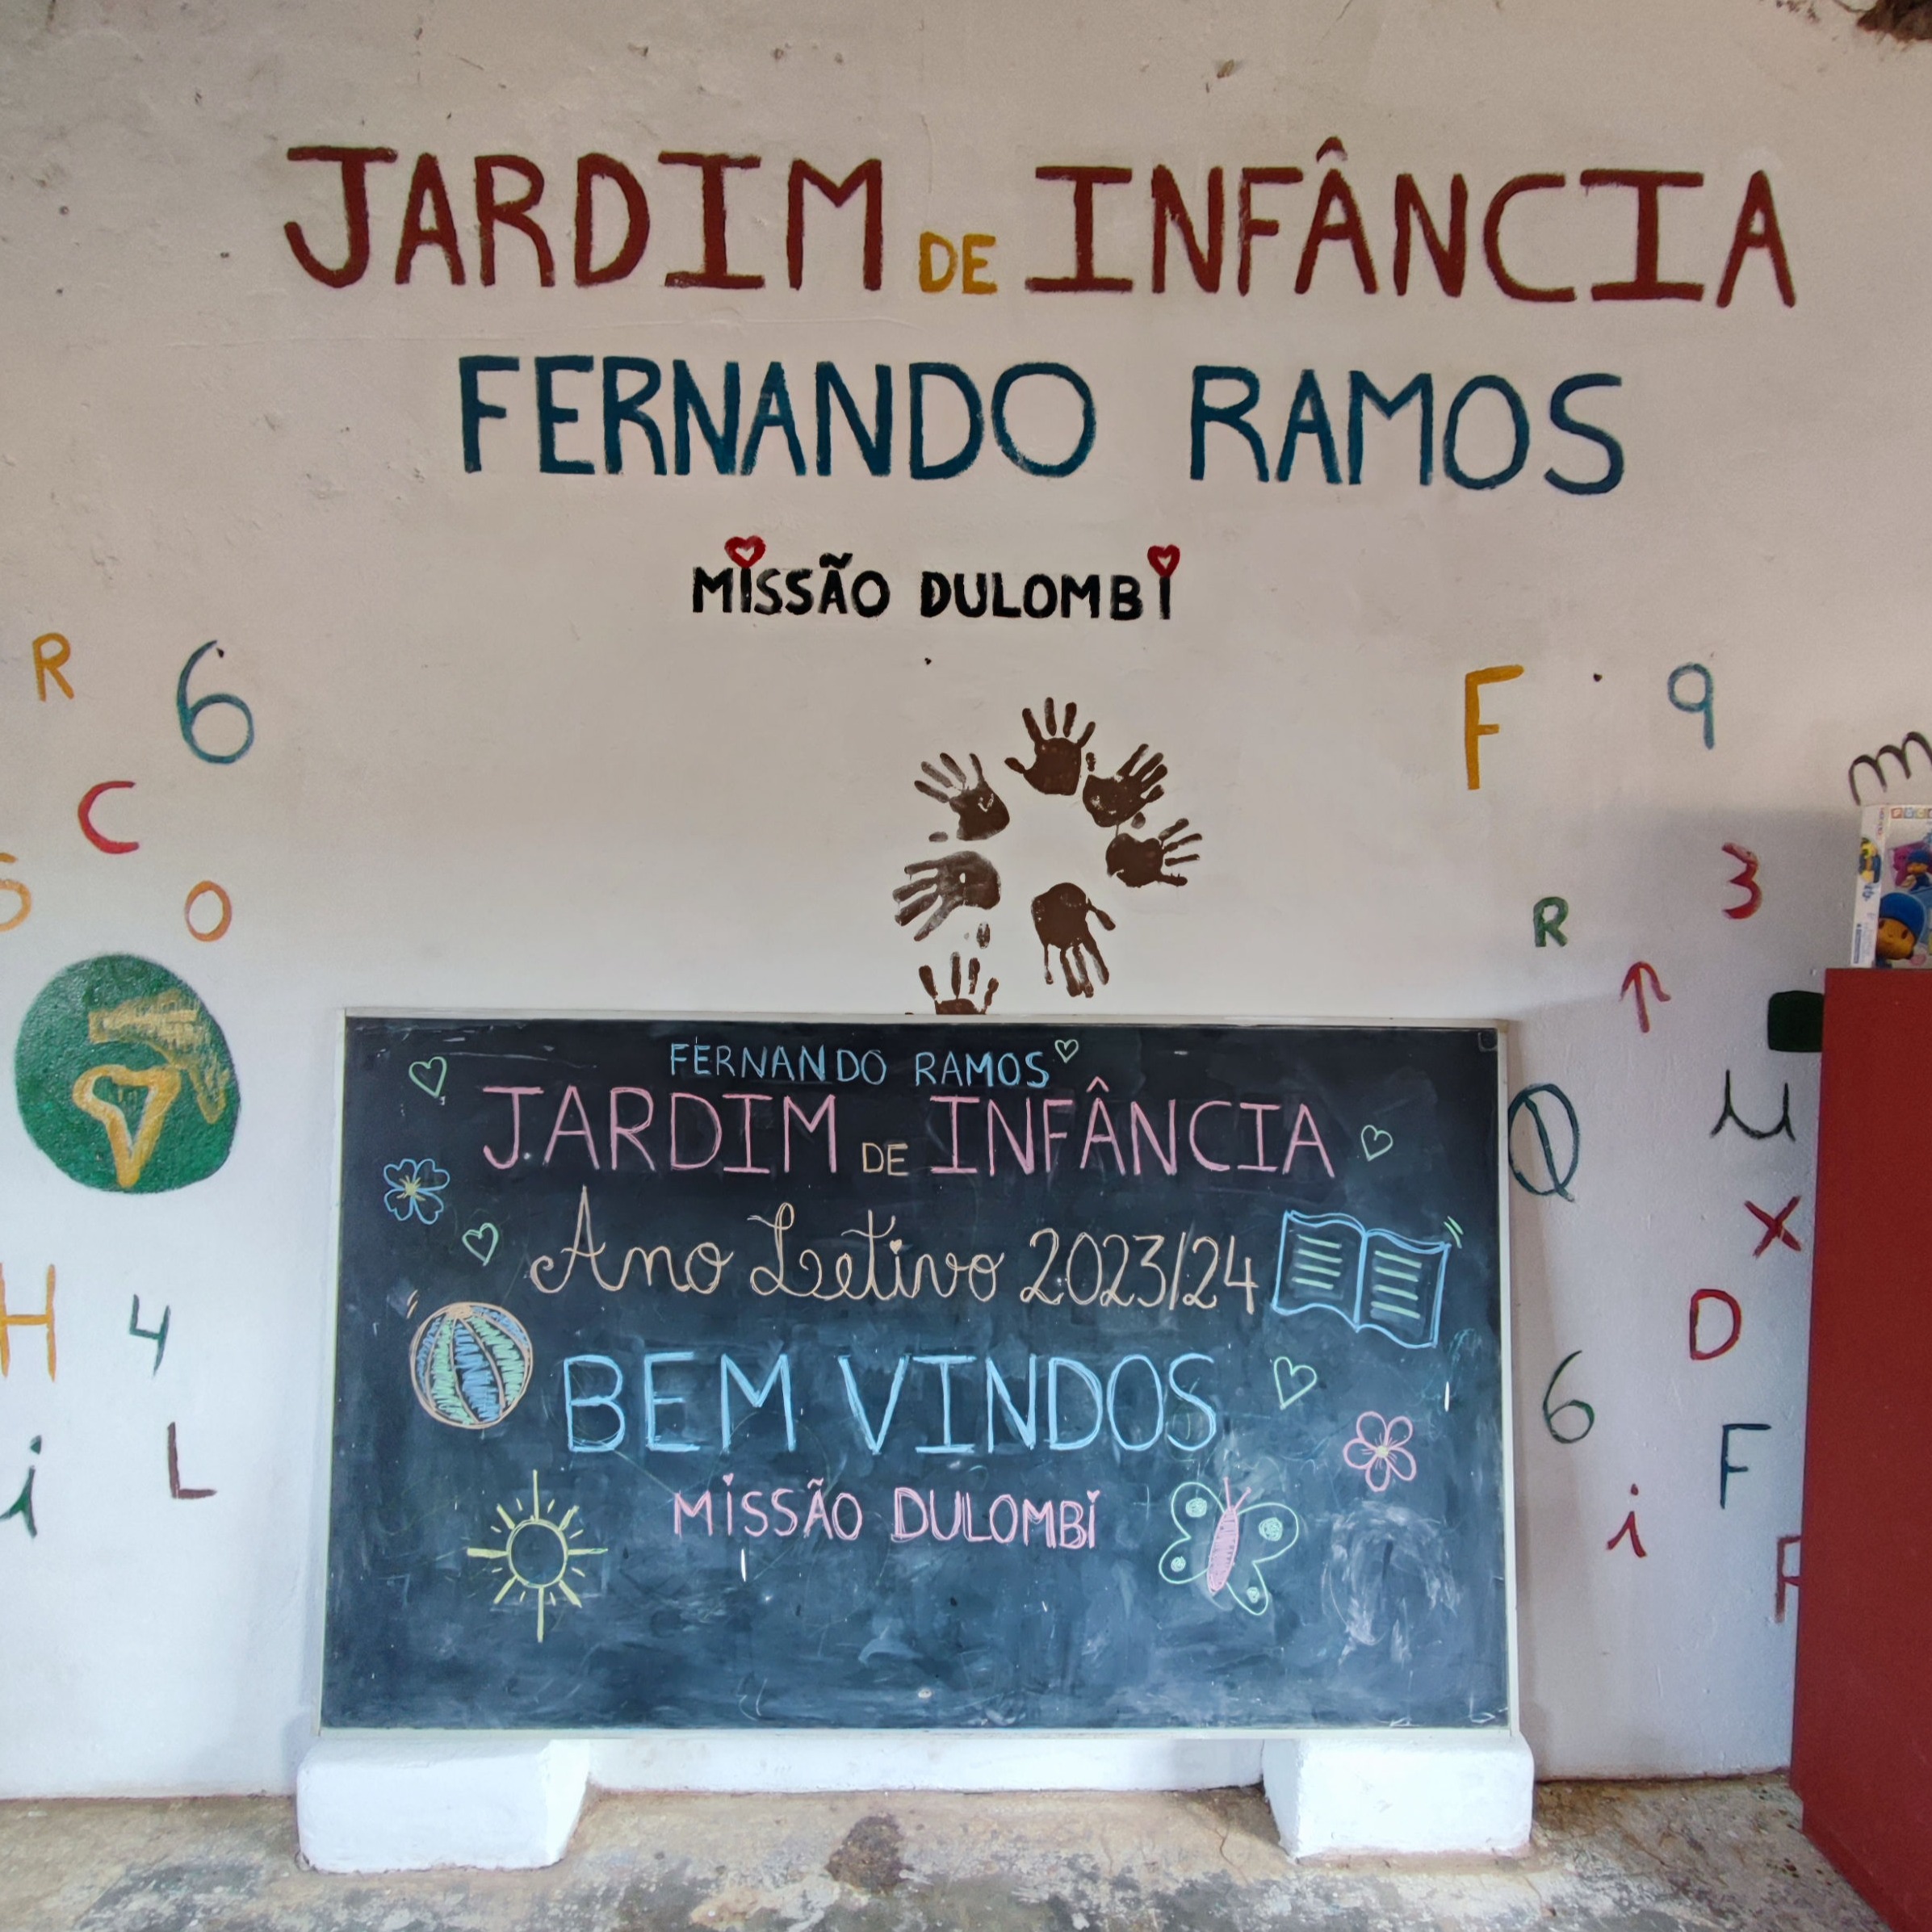 JARDIM DE INFÂNCIA
FERNANDO RAMOS
MISSÃO DULOMBI
R 6
C
S O
H 4
i L
F 9
m
R 3
D
6 F
i
FERNANDO RAMOS
JARDIM DE INFÂNCIA
Ano Letivo 2023/24
BEM VINDOS
MISSÃO DULOMBI